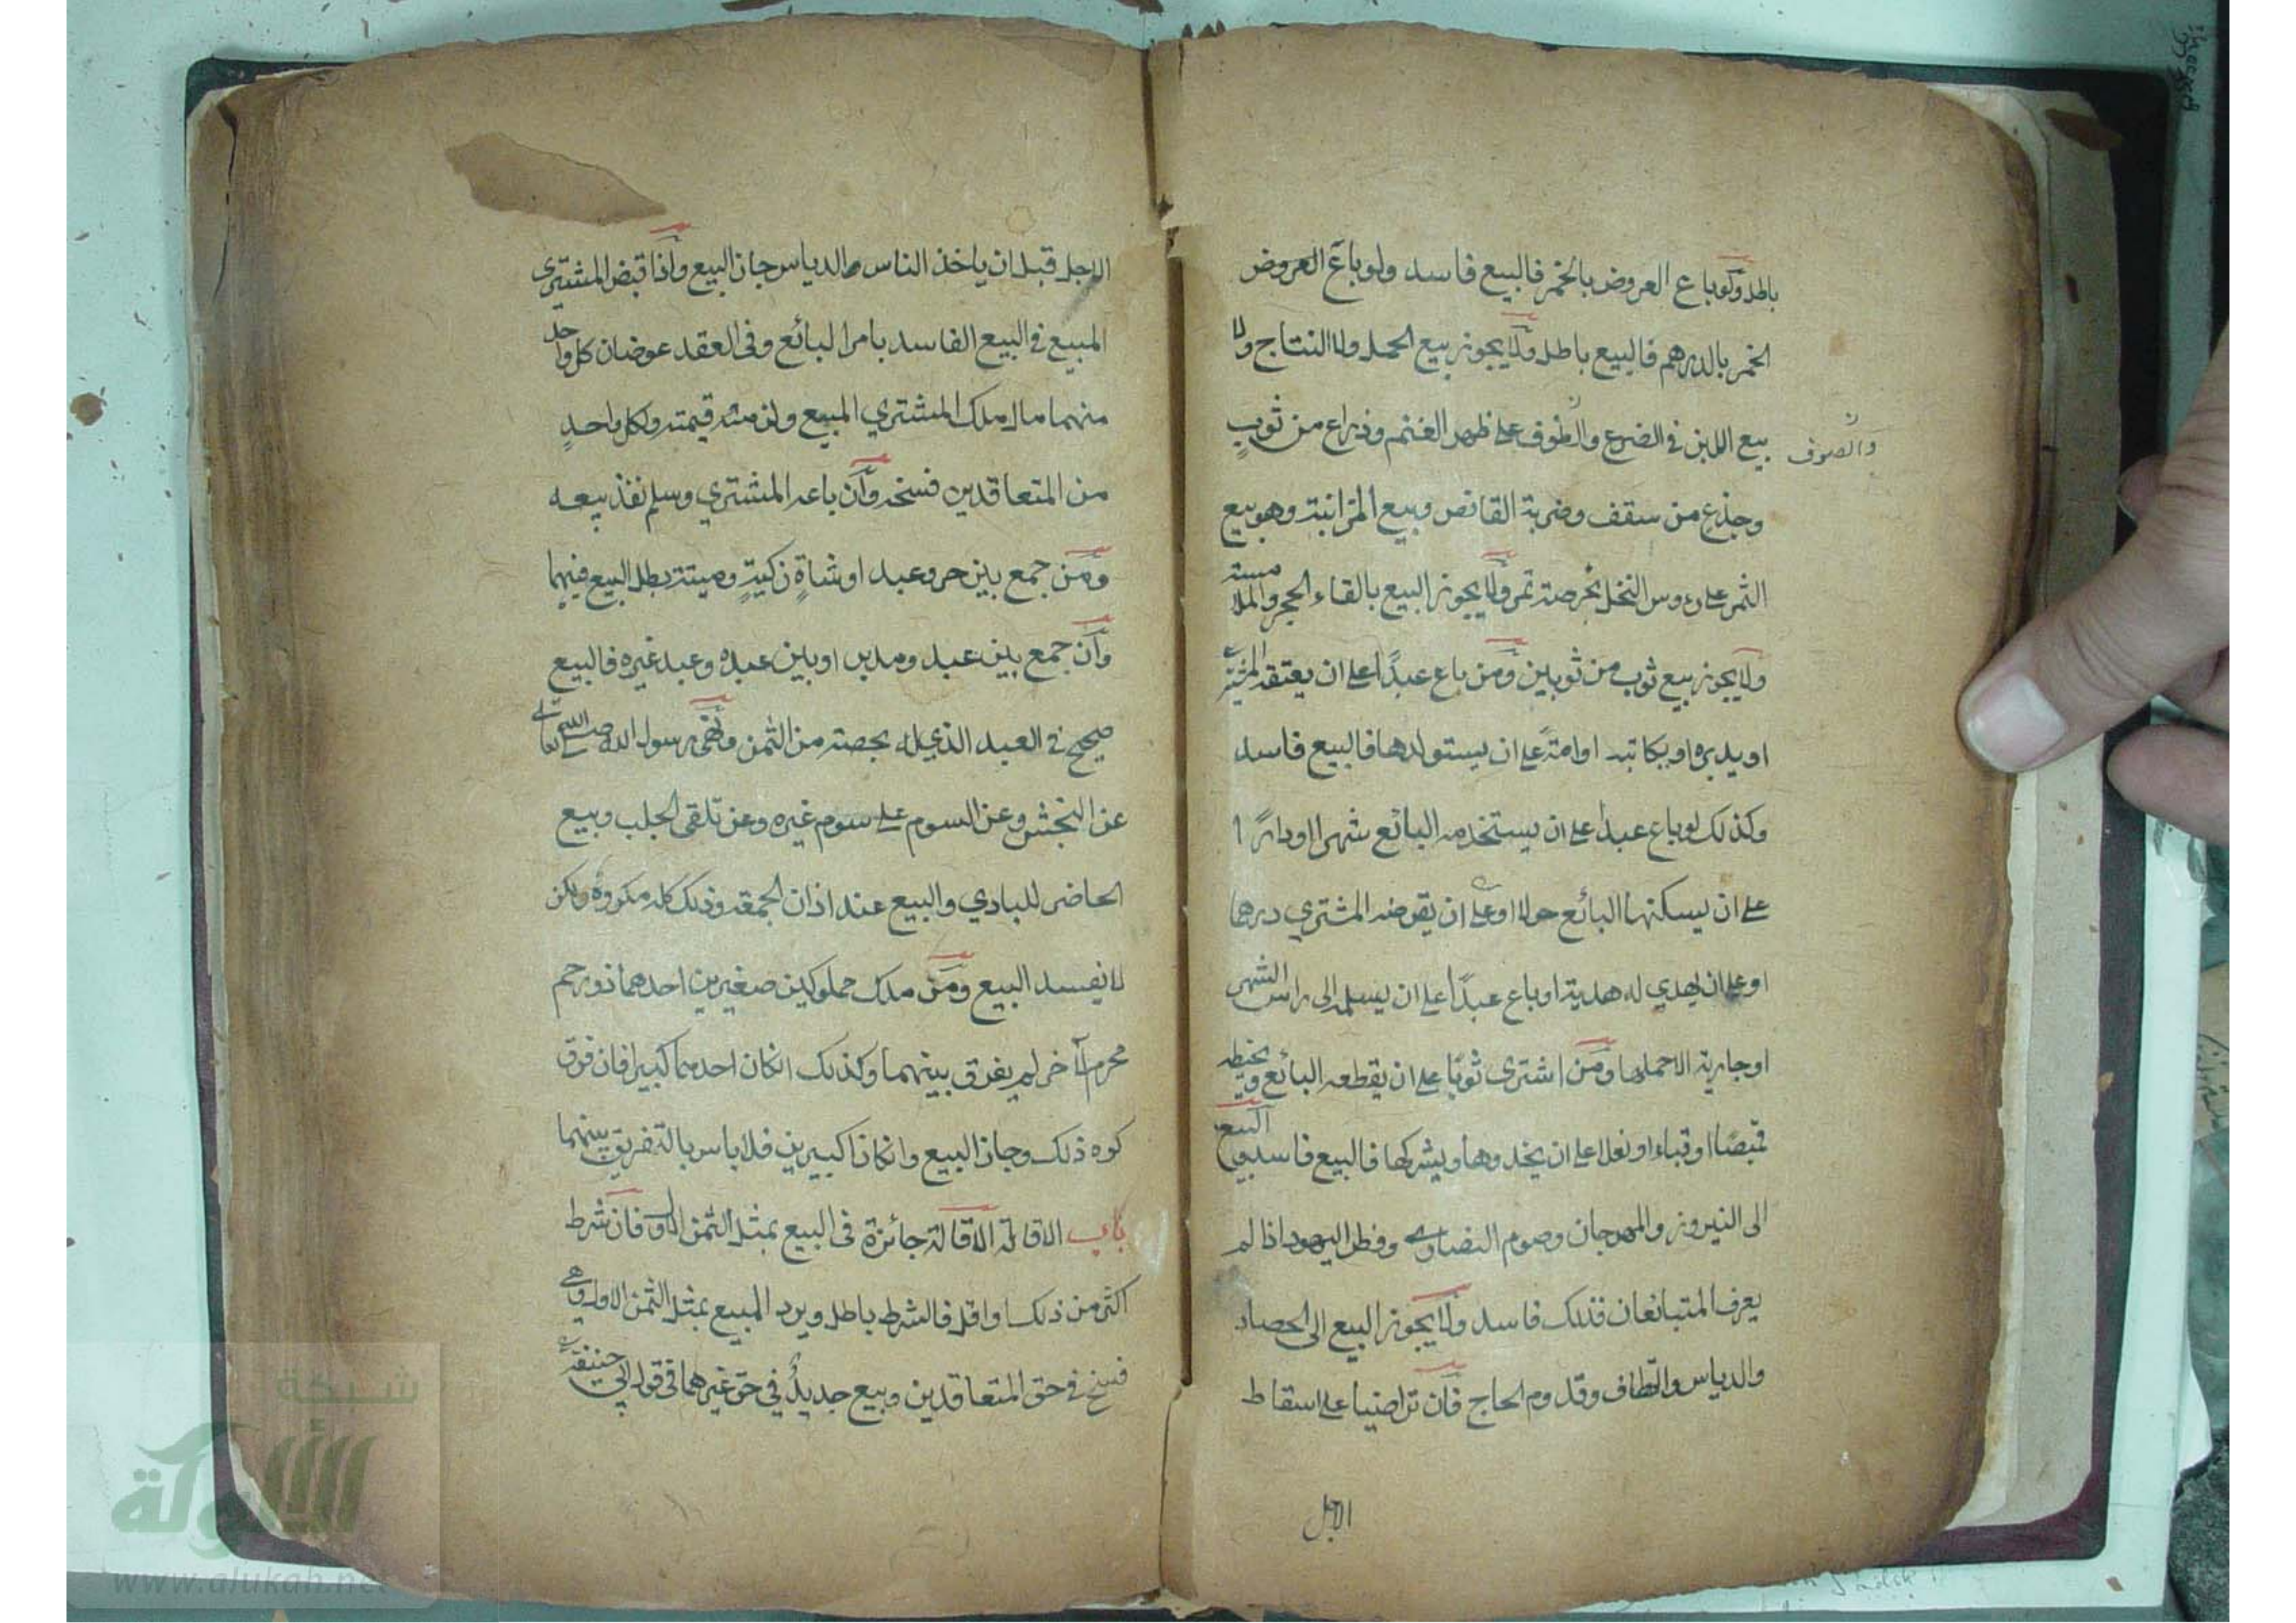 باطل ولو باع العروض بالخمر فالبيع فاسد ولو باع العروض
الخمر بالدرهم فالبيع باطل ولا يجوز بيع الحمل ولا النتاج ولا
بيع اللبن في الضرع والطوف على ظهر الغنم وذراع من ثوبٍ
والصوف
وجذع من سقف وضربة القانص وبيع المزابنة وهو بيع
الثمر على رءوس النخل بخرصه تمر ولا يجوز البيع بالقاء الحجر والملامسة
ولا يجوز بيع ثوب من ثوبين ومن باع عبدًا على ان يعتقه المشتري
او يدبره او يكاتبه او امةً على ان يستولدها فالبيع فاسد
وكذلك لو باع عبدا على ان يستخدمه البائع شهرا او دارًا
على ان يسكنها البائع حولا او على ان يقرضه المشتري درهما
او على ان يهدي له هدية او باع عبدًا على ان يسلمه الى راس الشهر
او جارية الا حملها ومن اشترى ثوبًا على ان يقطعه البائع ويخيطه
قميصًا او قباء او نعلا على ان يحذوها ويشركها فالبيع فاسد والبيع
الى النيروز والمهرجان وصوم النصارى وفطر اليهود اذا لم
يعرف المتبائعان فذلك فاسد ولا يجوز البيع الى الحصاد
والدياس والقطاف وقدوم الحاج فان تراضيا على اسقاط
الاجل
الاجل قبل ان ياخذ الناس والدياس جاز البيع واذا قبض المشتري
المبيع في البيع الفاسد بامر البائع وفي العقد عوضان كل واحد
منهما مال ملك المشتري المبيع ولزمته قيمته ولكل واحدٍ
من المتعاقدين فسخه وان باعه المشتري وسلم نفذ بيعه
ومن جمع بين حر وعبد او شاةٍ زكيةٍ وميتة بطل البيع فيهما
وان جمع بين عبد ومدبر او بين عبده وعبد غيره فالبيع
صحيح في العبد الذي له بحصته من الثمن ونهى رسول الله
عن النجش وعن السوم على سوم غيره وعن تلقى الجلب وبيع
الحاضر للبادي والبيع عند اذان الجمعة وذلك كله مكروه ولكن
لا يفسد البيع ومن ملك مملوكين صغيرين احدهما ذو رحم
محرم الآخر لم يفرق بينهما وكذلك انكان احدهما كبيرا فان فرق
كره ذلك وجاز البيع وانكانا كبيرين فلا باس بالتفريق بينهما
باب الاقالة الاقالة جائزة في البيع بمثل الثمن الاول فان شرط
اكثر من ذلك او اقل فالشرط باطل ويرد المبيع بمثل الثمن الاول وهي
فسخ في حق المتعاقدين وبيع جديدٌ في حق غيرهما في قول ابي حنيفة
شبكة
الألوكة
www.alukah.net